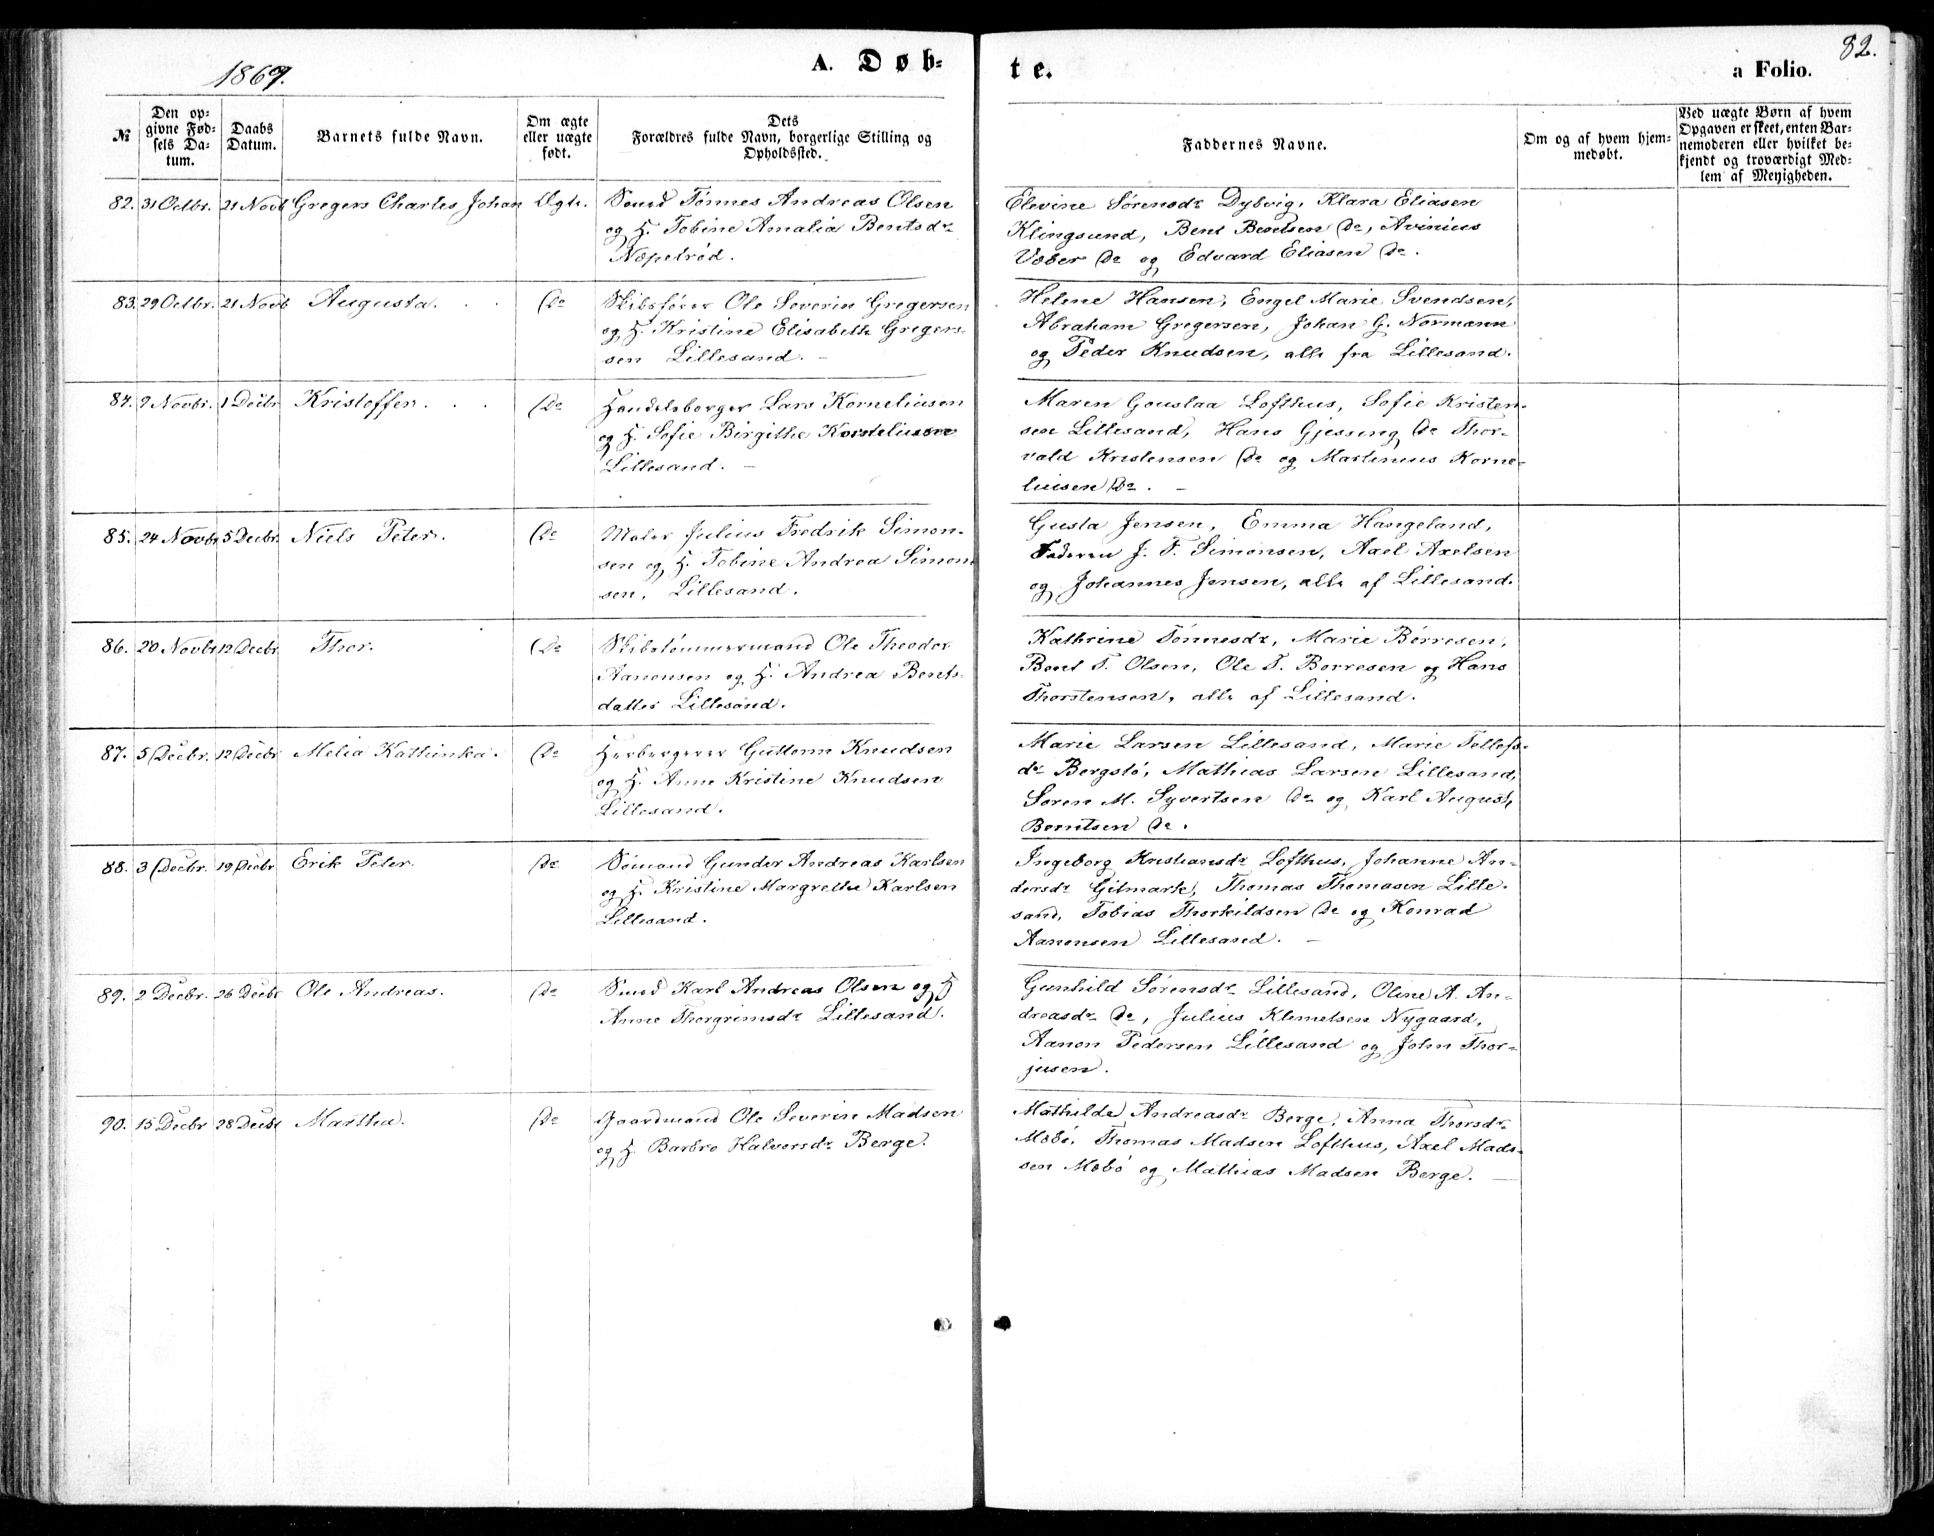 1869.
A. Døb-
te.
a Folio.
82.
№
Den op-
givne Fød-
sels Da-
tum.
Daabs
Datum.
Barnets fulde Navn.
Om ægte
eller uægte
født.
Dets
Forældres fulde Navn, borgerlige Stilling og
Opholdssted.
Faddernes Navne.
Om og af hvem hjem-
medøbt.
Ved uægte Børn af hvem
Opgaven er skeet, enten Bar-
nemoderen eller hvilket be-
kjendt og troværdigt Med-
lem af Menigheden.
82. 31 Octbr. 21 Novb Gregers Charles Johan Ægte. Smed Tønnes Andreas Olsen
og H. Tobine Amalia Bentsdr
Næpelrød.
Elevine Sørensdr Dybvig, Klara Eliasen
Klingsund, Bent Bentsen do, Avinius
Væber do og Edvard Eliasen do.
83. 29 Octbr. 21 Novb Augusta. do Skibsfører Ole Severin Gregersen
og H. Kristine Elisabeth Gregers-
sen Lillesand. -
Helene Hansen, Engel Marie Svendsen,
Abraham Gregersen, Johan G. Normann
og Peder Knudsen, alle fra Lillesand.
84. 9 Novbr. 1 Decbr Kristoffer. do Handelsborger Lars Korneliusen
og H. Sofie Birgithe Korneliusen
Lillesand. -
Maren Goustaa Lofthus, Sofie Kristen-
sen Lillesand, Hans Gjessing do Thor-
vald Kristensen do og Martinius Korne-
liusen do. -
85. 24 Novbr. 5 Decbr. Niels Peter. do Maler Julius Fredrik Simon-
sen og H. Tobine Andrea Simon-
sen, Lillesand.
Gusta Jensen, Emma Haugeland,
Faderen J. F. Simonsen, Axel Axelsen
og Johannes Jensen, alle af Lillesand.
86. 20 Novbr 12 Decbr. Thor. do Skibstømmermand Ole Theodor
Aanonsen og H. Andrea Bents-
datter Lillesand.
Kathrine Tønnesdr, Marie Børresen,
Bent T. Olsen, Ole T. Borresen og Hans
Thorstensen, alle af Lillesand.
87. 5 Decbr. 12 Decbr Melia Kathinka. do Herbergerer Guttorm Knudsen
og H. Anne Kristine Knudsen
Lillesand.
Marie Larsen Lillesand, Marie Tellefs-
dr Bergstø, Mathias Larsen Lillesand,
Søren M. Syvertsen do og Karl August
Berntsen do.
88. 3 Decbr. 19 Decbr Erik Peter. do Sømand Gunder Andreas Karlsen
og H. Kristine Margrethe Karlsen
Lillesand.
Ingeborg Kristiansdr Lofthus, Johanne An-
dersdr Gitmark, Thomas Thomasen Lille-
sand, Tobias Thorkildsen do og Konrad
Aanonsen Lillesand. -
89. 2 Decbr. 26 Decbr Ole Andreas. do Smed Karl Andreas Olsen og H
Anne Thorgrimsdr Lillesand.
Gunhild Sørensdr Lillesand, Oline A. An-
dreasdr do, Julius Klemetsen Nygaard,
Aanon Pedersen Lillesand og John Thor-
jusen.
90. 15 Decbr 28 Decbr Martha. do Gaardmand Ole Severin Madsen
og H. Barbro Halvorsdr Berge.
Mathilde Andreasdr Berge, Anna Thorsdr
Møbø, Thomas Madsen Lofthus, Axel Mads-
sen Møbø og Mathias Madsen Berge. -